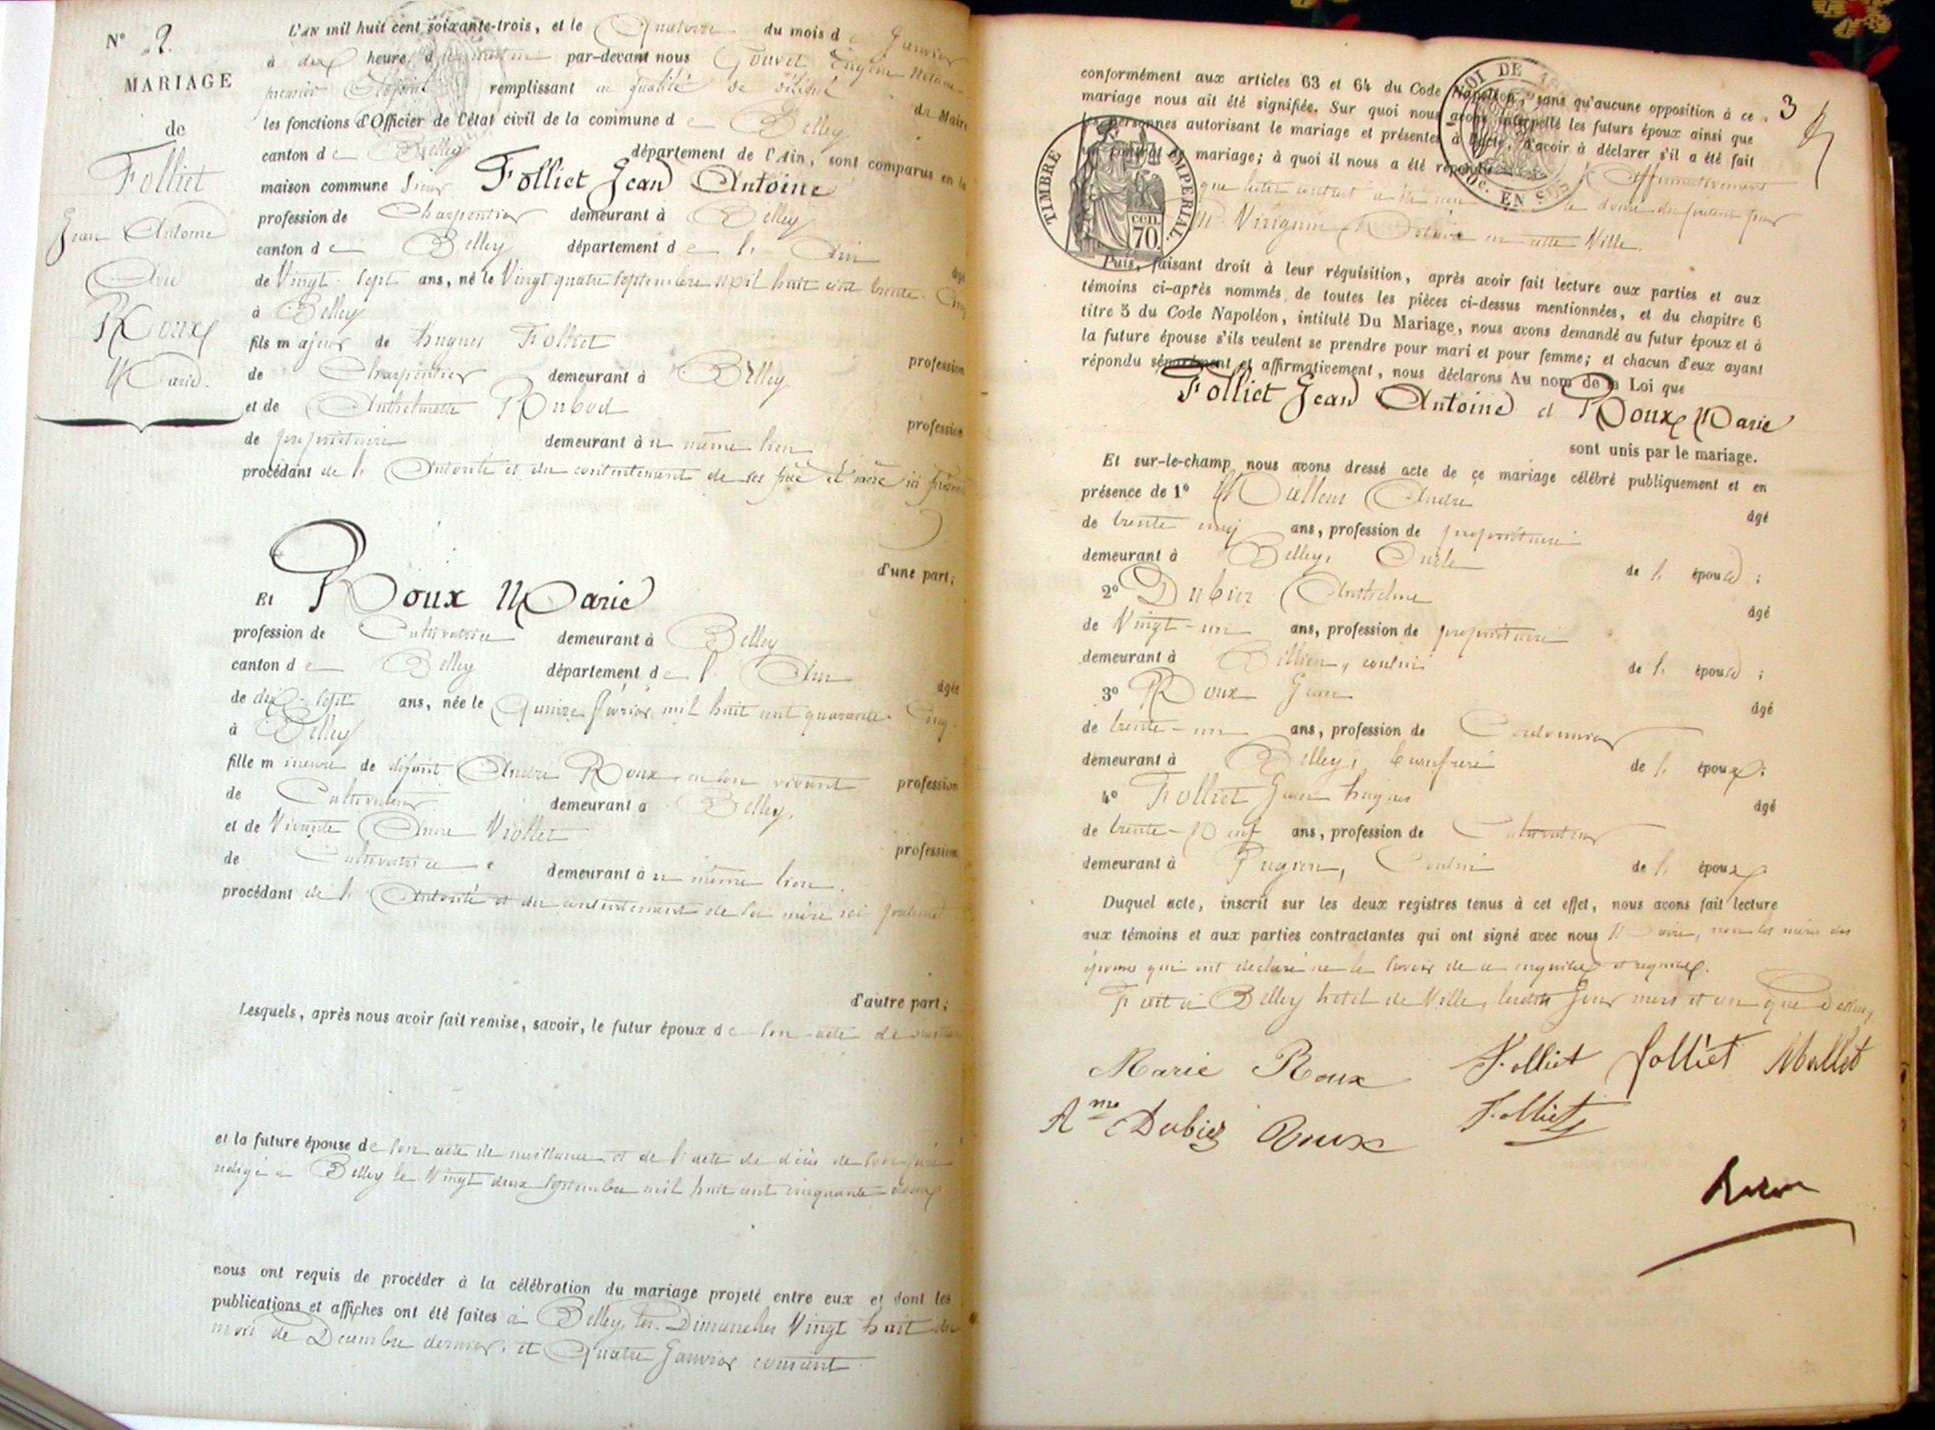 N° 2.
MARIAGE
de
Folliet
Jean Antoine
Avec
Roux
Marie.
L'AN mil huit cent soixante-trois, et le Quatorze du mois de Janvier
à dix heures du matin par-devant nous Gouvet Eugène Notaire
premier Adjoint remplissant en qualité de délégué du Maire
les fonctions d'Officier de l'état civil de la commune de Belley
canton de Belley département de l'Ain, sont comparus en la
maison commune Sieur Folliet Jean Antoine
profession de Charpentier demeurant à Belley
canton de Belley département de l'Ain âgé
de Vingt-sept ans, né le Vingt quatre septembre mil huit cent trente-Cinq
à Belley
fils majeur de hugues Folliet profession
de Charpentier demeurant à Belley
et de Anthelmette Rubod profession
de propriétaire demeurant à u même lieu
procédant de l'Autorité et du contentement de ses père & mère ici présents
d'une part;
Et Roux Marie
profession de Cultivatrice demeurant à Belley
canton de Belley département de l'Ain âgée
de dix-sept ans, née le Quinze février mil huit cent quarante-Cinq
à Belley
fille mineure de défunt André Roux, en son vivant profession
de Cultivateur demeurant à Belley,
et de Vivante Anne Viollet profession
de Cultivatrice demeurant à u même lieu.
procédant de l'Autorité et du contentement de sa mère ici présente
d'autre part;
Lesquels, après nous avoir fait remise, savoir, le futur époux de son acte de naissance
et la future épouse de son acte de naissance et de l'acte de décès de son père
rédigé à Belley le Vingt deux Septembre mil huit cent cinquante deux
nous ont requis de procéder à la célébration du mariage projeté entre eux et dont les
publications et affiches ont été faites à Belley, les Dimanches Vingt huit du
mois de Décembre dernier, et Quatre Janvier courant.
3
conformément aux articles 63 et 64 du Code Napoléon, sans qu'aucune opposition à ce
mariage nous ait été signifiée. Sur quoi nous avons interpellé les futurs époux ainsi que
les personnes autorisant le mariage et présentes à l'acte, d'avoir à déclarer s'il a été fait
un contrat de mariage; à quoi il nous a été répondu Affirmativement
que ledit contrat a été reçu le douze du présent par
Mr Virignin Notaire en cette Ville.
TIMBRE IMPERIAL.
70 cen.
LOI DE
EN SUS
Puis, faisant droit à leur réquisition, après avoir fait lecture aux parties et aux
témoins ci-après nommés, de toutes les pièces ci-dessus mentionnées, et du chapitre 6
titre 5 du Code Napoléon, intitulé Du Mariage, nous avons demandé au futur époux et à
la future épouse s'ils veulent se prendre pour mari et pour femme; et chacun d'eux ayant
répondu séparément et affirmativement, nous déclarons Au nom de la Loi que
Folliet Jean Antoine et Roux Marie
sont unis par le mariage.
Et sur-le-champ nous avons dressé acte de ce mariage célébré publiquement et en
présence de 1° André âgé
de trente ans, profession de propriétaire
demeurant à Belley, Oncle de l'épouse;
2° Dubiez Anthelme âgé
de Vingt-un ans, profession de propriétaire
demeurant à Billieu, cousin de l'épouse;
3° Roux Jean âgé
de trente-un ans, profession de Cordonnier
demeurant à Belley, beaufrère de l'époux;
4° Folliet Jean hugues âgé
de trente-Neuf ans, profession de Cultivateur
demeurant à Pugieu, Cousin de l'époux
Duquel acte, inscrit sur les deux registres tenus à cet effet, nous avons fait lecture
aux témoins et aux parties contractantes qui ont signé avec nous Maire, non les mères des
époux qui ont déclaré ne le savoir de ce enquises et requises.
Fait à Belley hôtel de Ville, lesdits Jour mois et an que Dessus,
Marie Roux Folliet folliet Mullet
A me Dubiez Roux Folliet